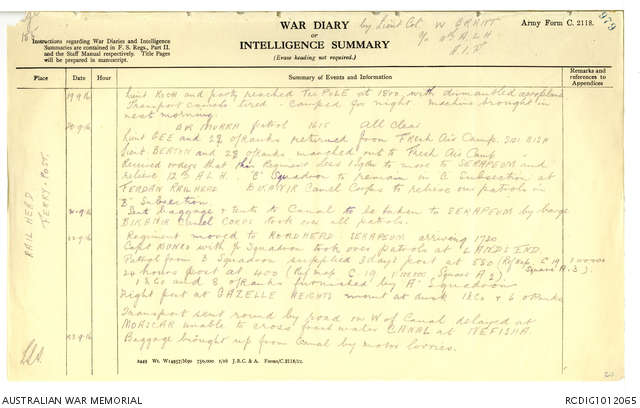 WAR DIARY
by Lieut Col. W GRANT
or
INTELLIGENCE SUMMARY
(Erase heading not required.)
Army Form C. 2118.
979
Instructions regarding War Diaries and Intelligence
Summaries are contained in F. S. Regs., Part II.
and the Staff Manual respectively. Title Pages
will be prepared in manuscript.
A.I.F
Place
Date
Hour
Summary of Events and Information
Remarks and
references to
Appendices
RAILHEAD
FERRY POST.
19.9.16
Lieut ROCH and party reached Tel POLE at 1800, with dismantled aeroplane
Transport camels tired. Camped for night machine brought in
next morning.
20.9.16
patrol 1615 All Clear
Lieut GEE and 29 o/Ranks returned from Fresh Air Camp SIDI BISH
Lieut BERTON and 29 o/Ranks marched out to Fresh Air Camp "
Received orders that this Regiment less 1 Sqdn to move to SERAPEUM and
relieve 12th A.L.H. "B" Squadron to remain in C Subsection at
FERDAN RAILHEAD BIKANIR Camel Corps to relieve our patrols in
B" Subsection
21.9.16
Sent baggage & tents to Canal to be taken to SERAPEUM by barge
BIKANIR Camel CORPS took over all patrols.
22.9.16
Regiment moved to ROADHEAD SERAPEUM arriving 1720
Capt with Squadron took over patrols at LANDS END.
Patrol from Squadron supplied 3 days post at 550 (Ref map E 19
24 hours post at 400 (Ref map E 19 Square A 2).
1 NCo and 8 o/Ranks furnished by A Squadron
Night post at GAZELLE HEIGHTS mount at dusk 1 NCo & 6 o/Ranks
Transport sent round by road on W of Canal delayed at
MOASCAR unable to cross fresh water CANAL at NEFISHA.
23.9.16
Baggage brought up from Canal by motor lorries.
2449 Wt. W14957/M90 750,000 1/16 J.B.C. & A. Forms/C.2118/12.
AUSTRALIAN WAR MEMORIAL
RCDIG1012065